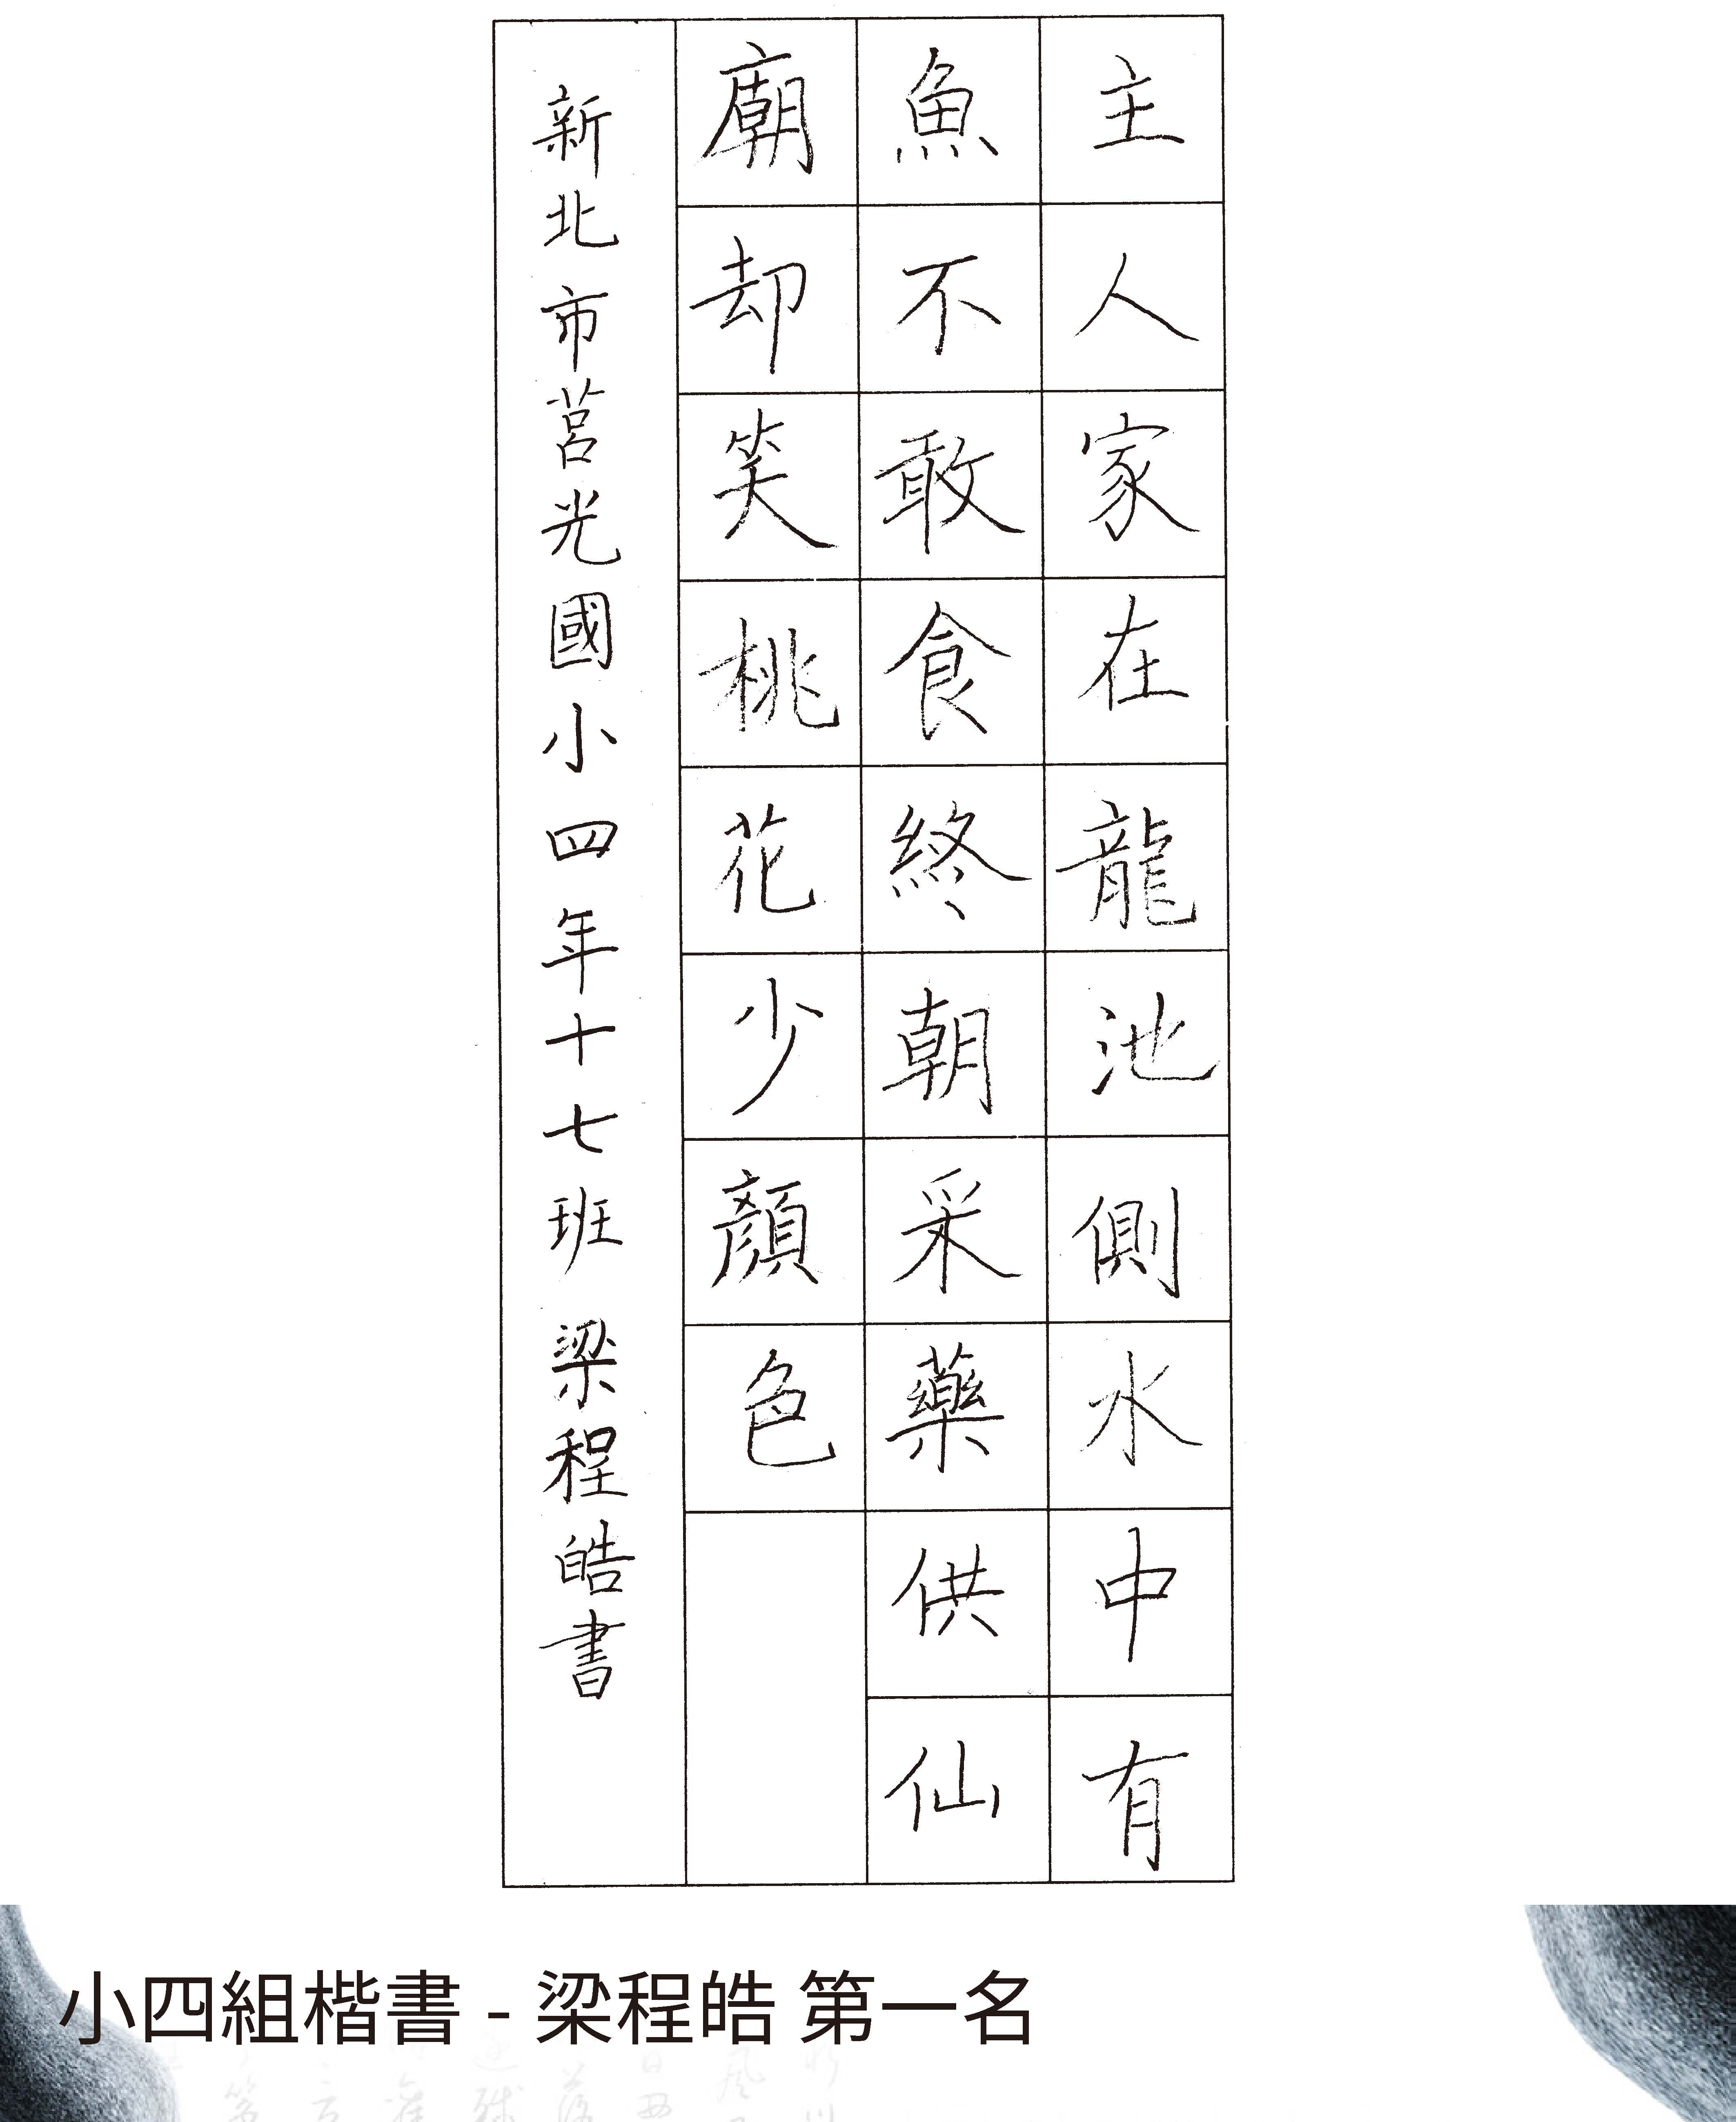 主人家在龍池側水中有
魚不敢食終朝采藥供仙
廟却笑桃花少顏色
新北市莒光國小四年十七班梁程皓書
小四組楷書 - 梁程皓 第一名